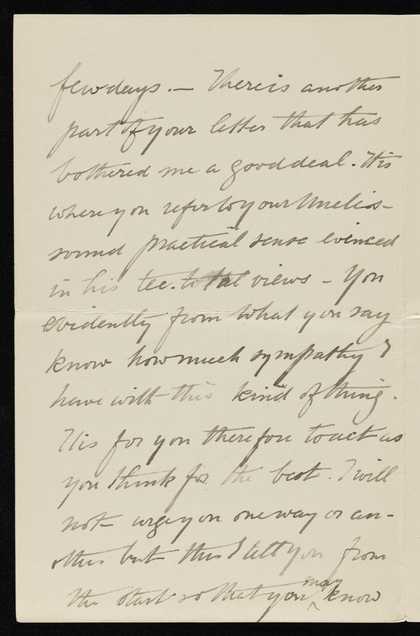 few days. — There is another
part of your letter that has
bothered me a good deal. It is
where you refer to your Uncle's
sound practical sense evinced
in his tee-total views — You
evidently from what you say
know how much sympathy I
have with this kind of thing.
It is for you therefore to act as
you think for the best. I will
not urge you one way or an-
other but this I tell you from
the start so that you may know